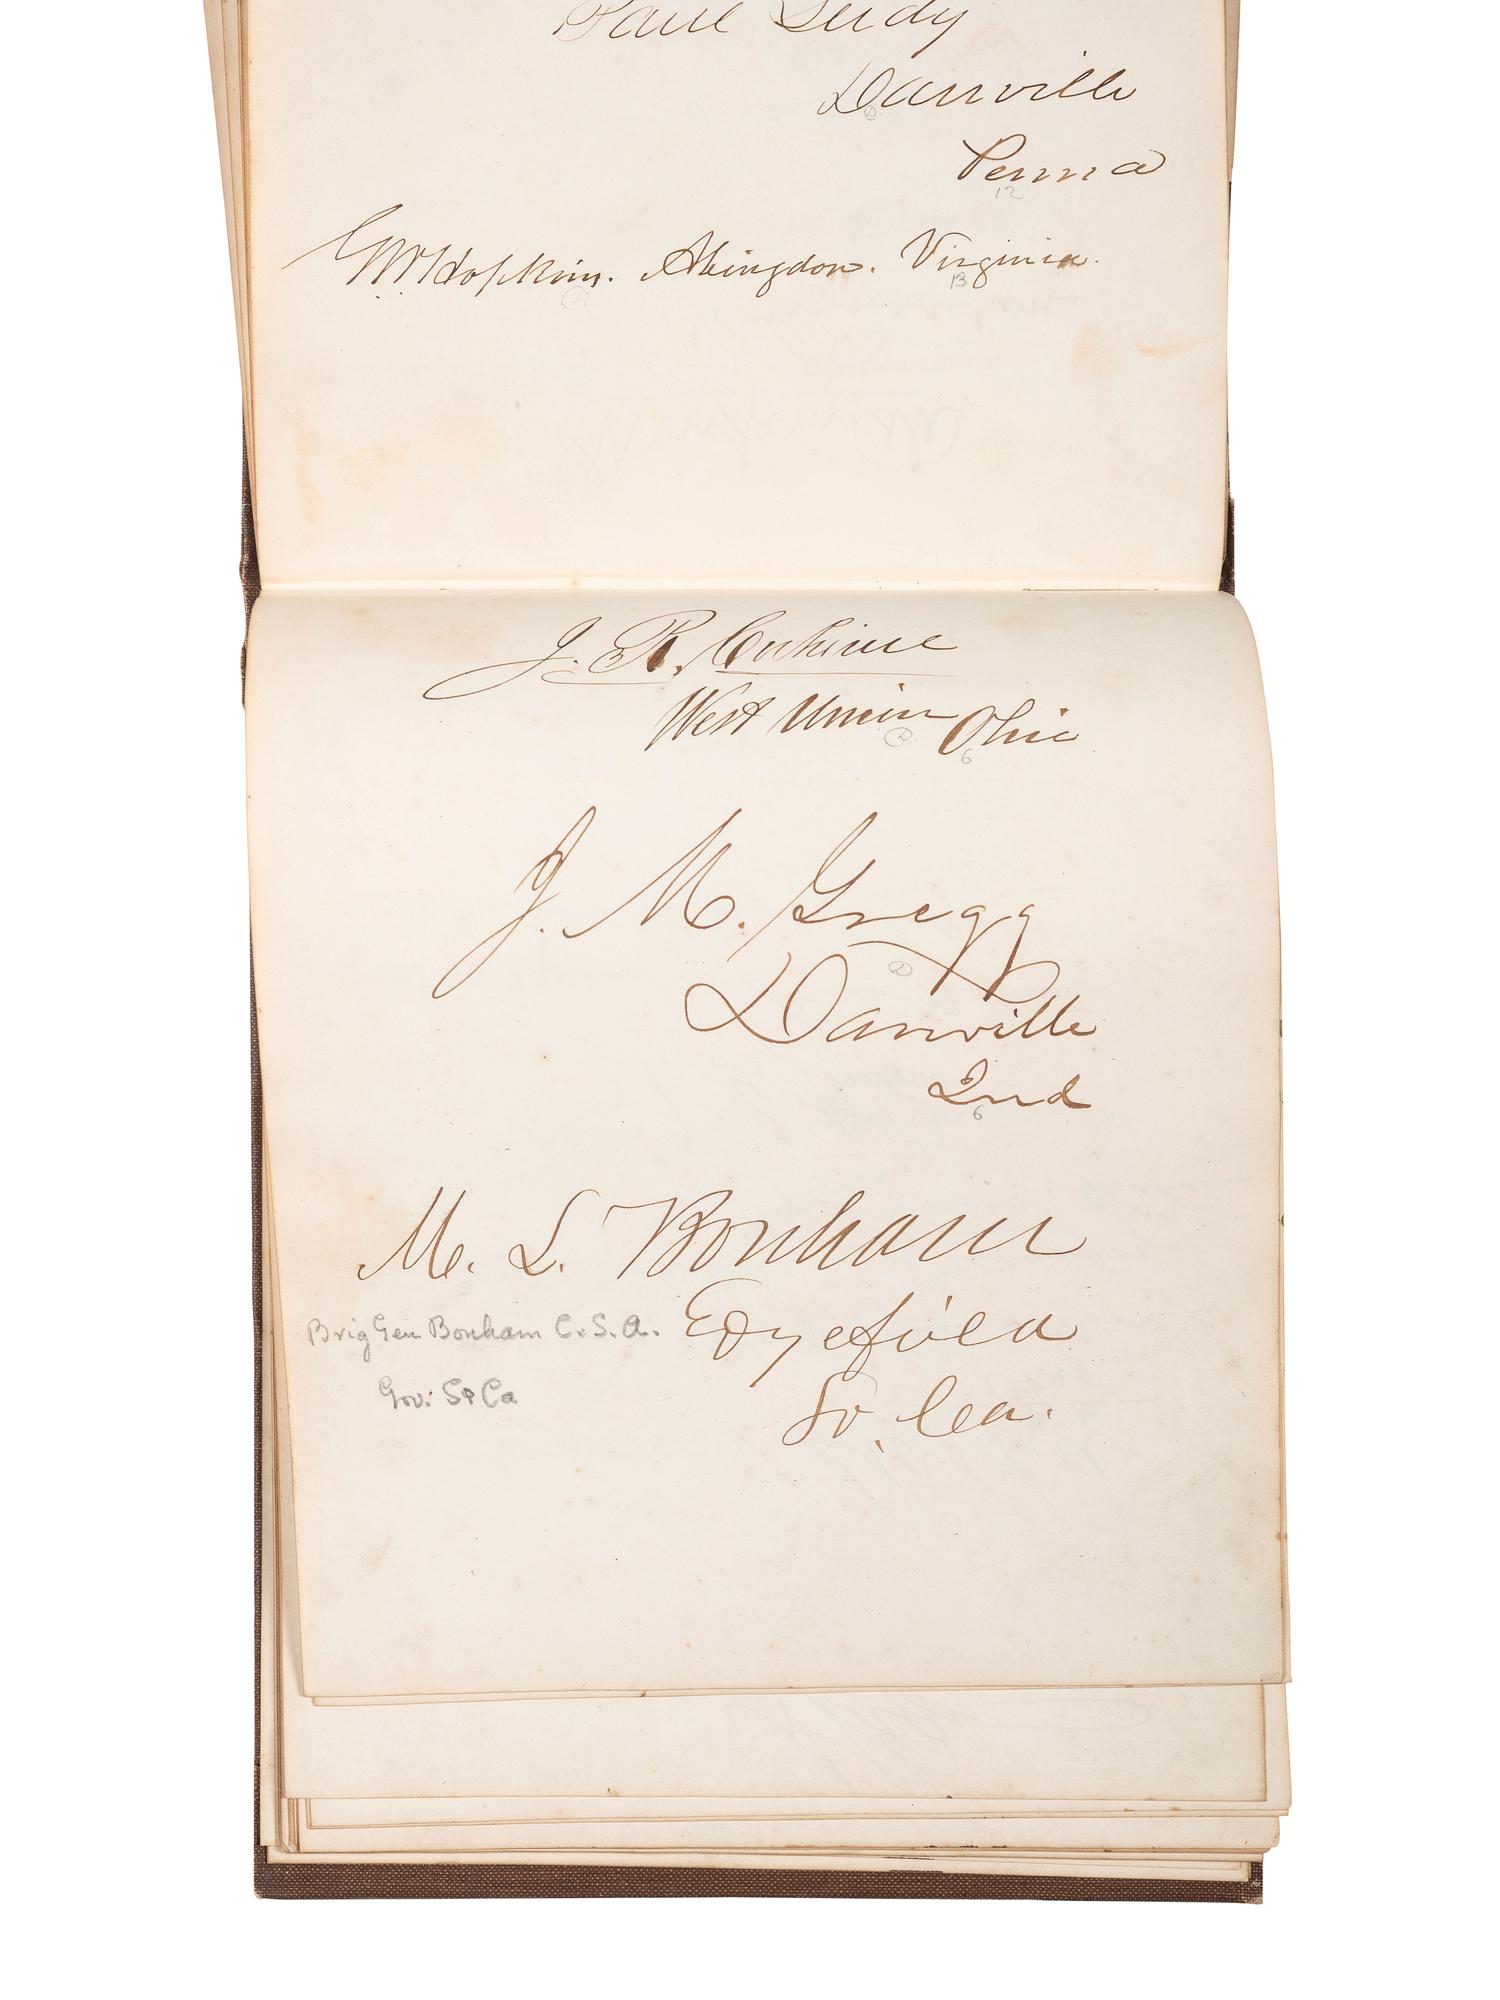 Paul Leidy
Danville
Penna
12
G.W. Hopkins. Abingdon. Virginia.
13
J. R. Cockerill
West Union Ohio
6
J. M. Gregg
Danville
Ind
6
M. L. Bonham
Brig Gen Bonham C. S. A. Edgefield
Gov: So Ca So. Ca.